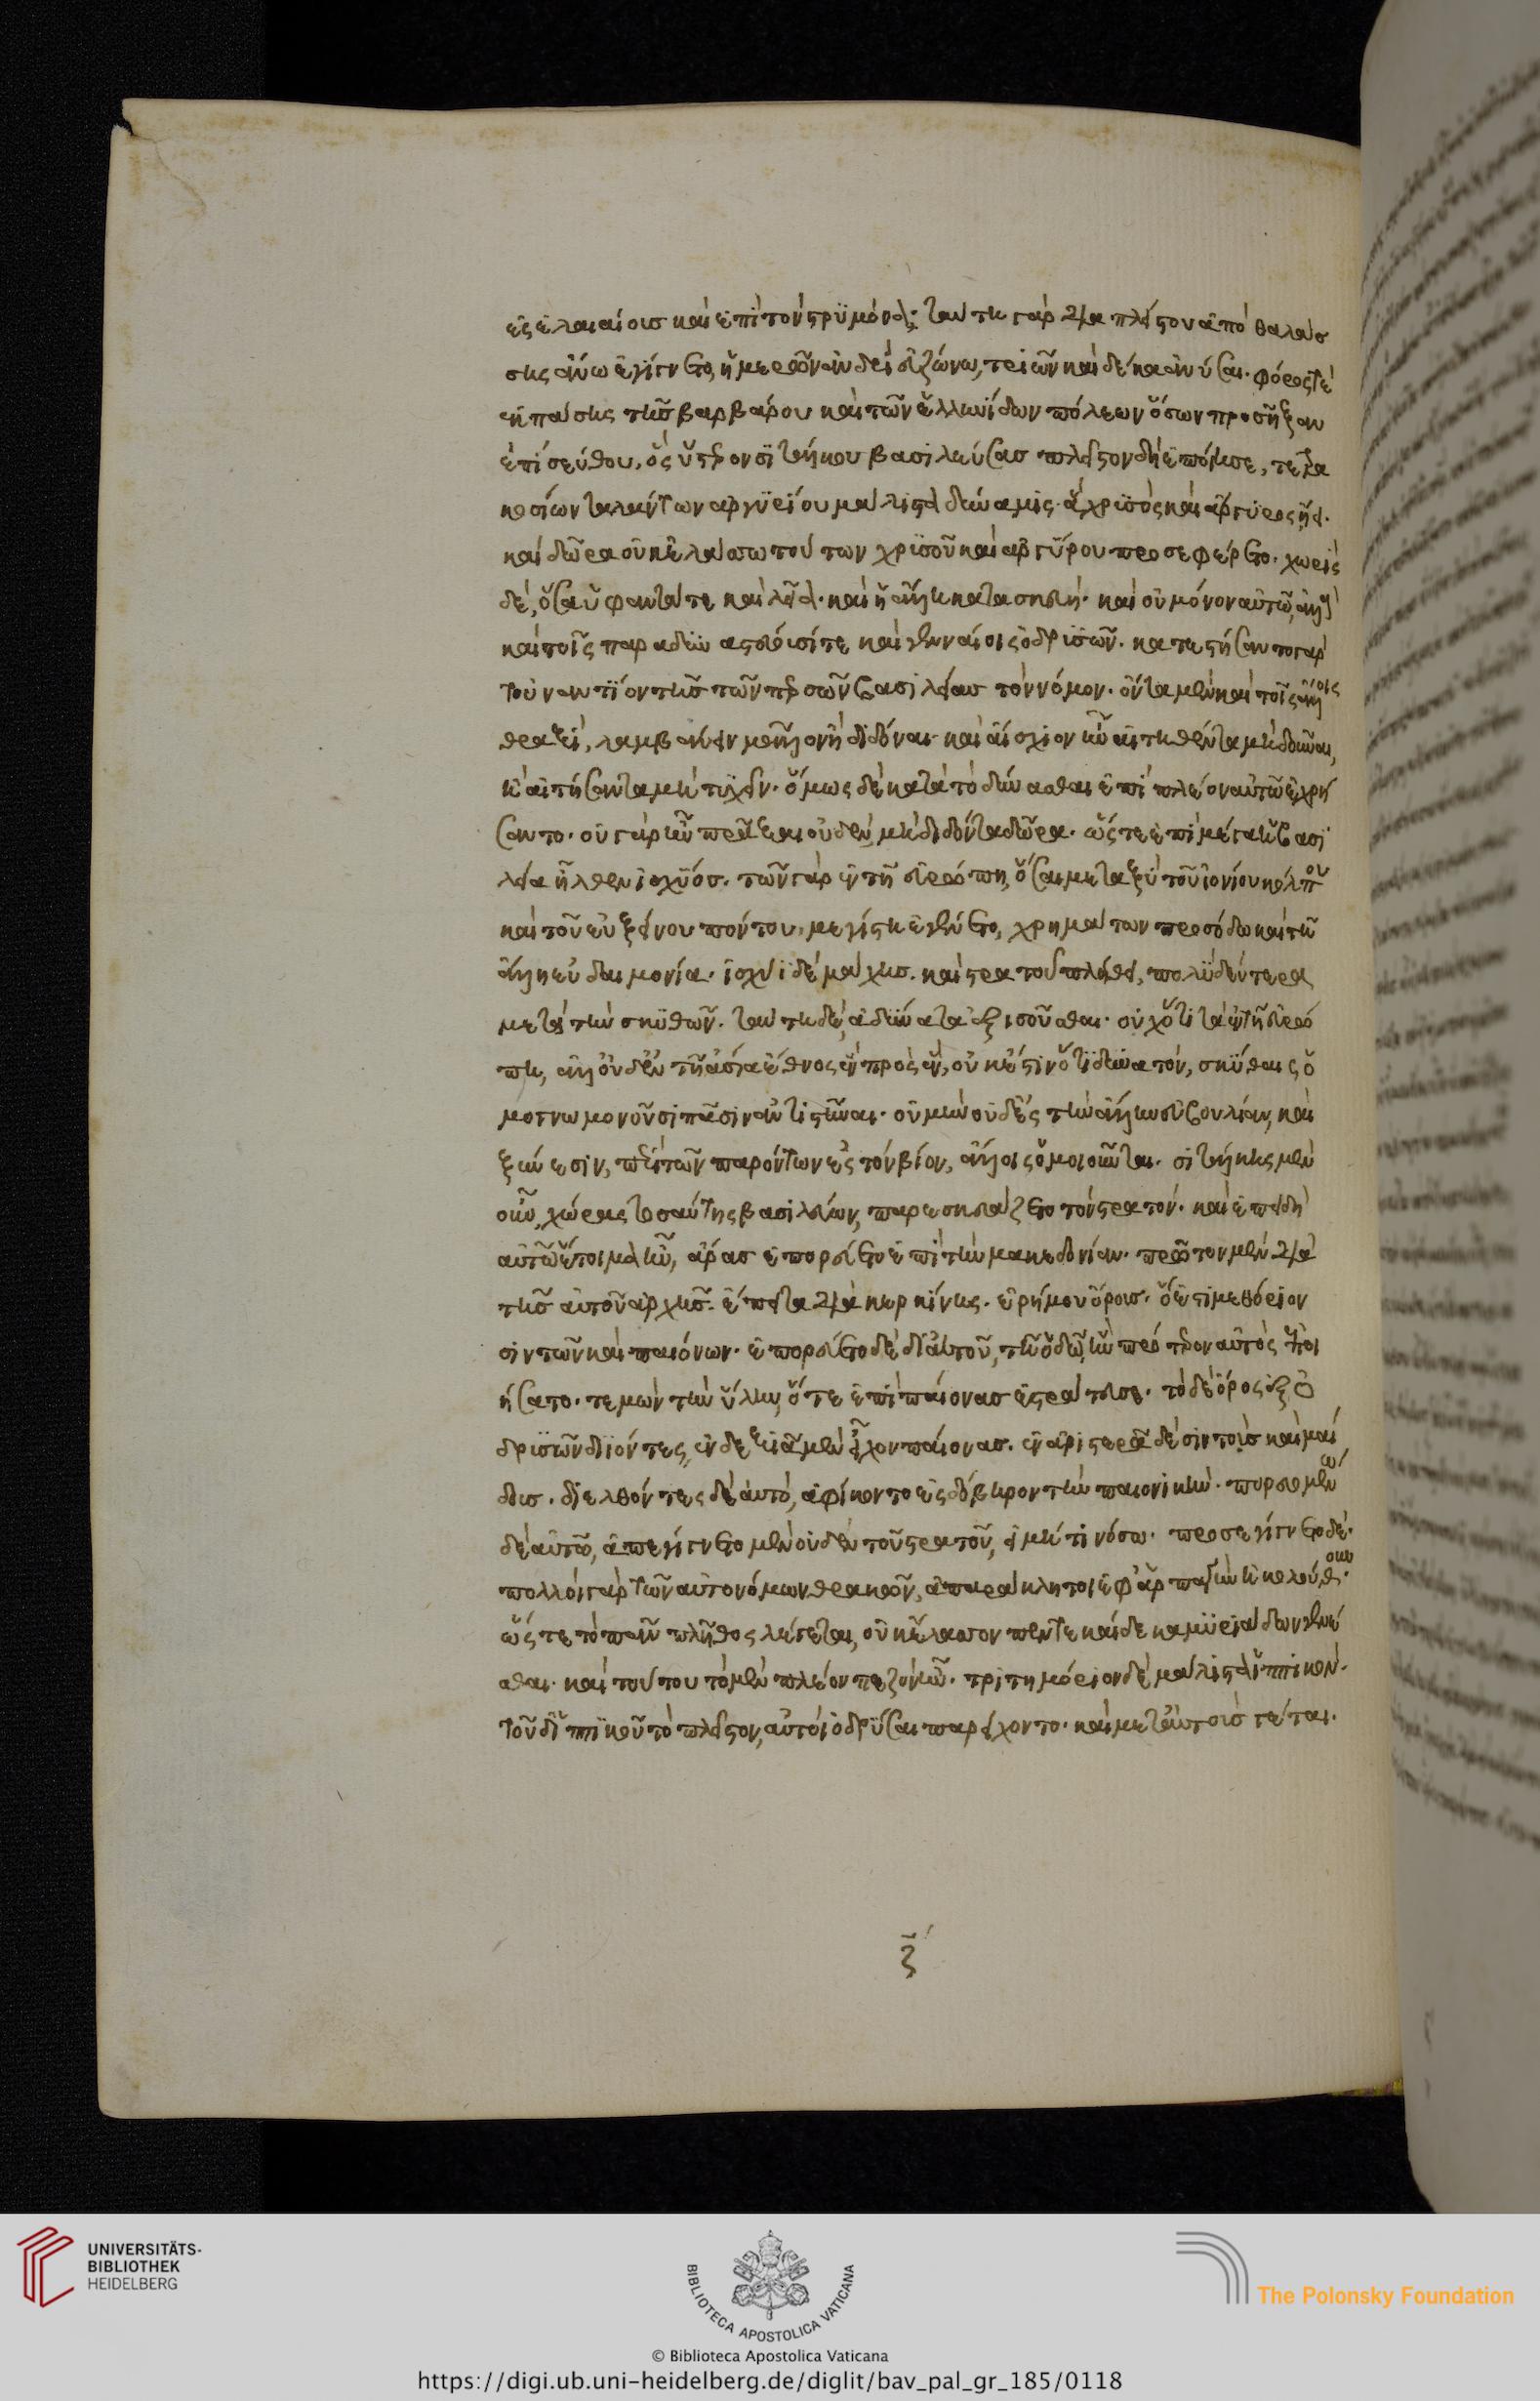 ἐς ἐλαιαίους καὶ ἐπὶ τὸν στρυμόνα· ταύτη γὰρ διὰ πλείστου ἀπὸ θαλάσ
σης ἄνω ἐγίγνετο, ἡμερῶν ἀνδρὶ εὐζώνω, τριῶν καὶ δέκα ἀνύσαι. φόρος τε
ἐκ πάσης τῆς βαρβάρου καὶ τῶν ἑλληνίδων πόλεων ὅσων προσῆξαν
ἐπὶ σεύθου, ὃς ὕστερον σιτάλκου βασιλεύσας πλεῖστον δὴ ἐποίησε, τετρα
κοσίων ταλάντων ἀργυρίου μάλιστα δύναμις. ἃ χρυσὸς καὶ ἄργυρος ἤει.
καὶ δῶρα οὐκ ἐλάσσω τούτων χρυσοῦ καὶ ἀργύρου προσεφέρετο. χωρὶς
δὲ, ὅσα ὑφαντά τε καὶ λεῖα. καὶ ἡ ἄλλη κατασκευή. καὶ οὐ μόνον αὐτῶ, ἀλλὰ
καὶ τοῖς παραδυναστεύουσί τε καὶ γενναίοις ὀδρυσῶν. κατεστήσαντο γὰρ
τοὐναντίον τῆς τῶν περσῶν βασιλείας τὸν νόμον. ὄντα μὲν καὶ τοῖς ἄλλοις
θραξὶ, λαμβάνειν μᾶλλον ἢ διδόναι. καὶ αἴσχιον ἦν αἰτηθέντα μὴ δοῦναι,
ἢ αἰτήσαντα μὴ τυχεῖν. ὅμως δὲ κατὰ τὸ δύνασθαι ἐπὶ πλέον αὐτῶ ἐχρή
σαντο. οὐ γὰρ ἦν πρᾶξαι οὐδὲν μὴ διδόντα δῶρα. ὥστε ἐπὶ μέγα ἡ βασι
λεία ἦλθεν ἰσχύος. τῶν γὰρ ἐν τῆ εὐρώπη, ὅσαι μεταξὺ τοῦ ἰονίου κόλπου
καὶ τοῦ εὐξείνου πόντου, μεγίστη ἐγένετο, χρημάτων προσόδω καὶ τῆ
ἄλλη εὐδαιμονία. ἰσχύι δὲ μάχης. καὶ στρατοῦ πλήθει, πολὺ δευτέρα
μετὰ τὴν σκυθῶν. ταύτη δὲ, ἀδύνατα ἐξισοῦσθαι. οὐχ ὅτι τὰ ἐν τῆ εὐρώ
πη, ἀλλ' οὐδ' ἐν τῆ ἀσία ἔθνος ἓν πρὸς ἓν, οὐκ ἔστιν ὅτι δυνατὸν, σκύθαις ὁ
μογνωμονοῦσι πᾶσιν ἀντιστῆναι. οὐ μὴν οὐδ' ἐς τὴν ἄλλην εὐβουλίαν, καὶ
ξύνεσιν, περὶ τῶν παρόντων ἐς τὸν βίον, ἄλλοις ὁμοιοῦνται. σιτάλκης μὲν
οὖν, χώρας τοσαύτης βασιλεύων, παρεσκευάζετο τὸν στρατόν. καὶ ἐπειδὴ
αὐτῶ ἕτοιμα ἦν, ἄρας ἐπορεύετο ἐπὶ τὴν μακεδονίαν. πρῶτον μὲν διὰ
τῆς αὑτοῦ ἀρχῆς. ἔπειτα διὰ κερκίνης. ἐρήμου ὄρους. ὅ ἐστι μεθόριον
σιντῶν καὶ παιόνων. ἐπορεύετο δὲ δι' αὐτοῦ, τῆ ὁδῶ, ἣν πρότερον αὐτὸς ἐποι
ήσατο. τεμὼν τὴν ὕλην, ὅτε ἐπὶ παίονας ἐστράτευσε. τὸ δὲ ὄρος ἐξ ὀ
δρυσῶν διιόντες, ἐν δεξιᾶ μὲν εἶχον παίονας. ἐν ἀριστερᾶ δὲ σιντοὺς καὶ μαί
δους. διελθόντες δὲ αὐτὸ, ἀφίκοντο ἐς δόβηρον τὴν παιονικήν. πορευομένω
δὲ αὐτῶ, ἀπεγίγνετο μὲν οὐδὲν τοῦ στρατοῦ, εἰ μή τι νόσω. προσεγίγνετο δέ.
πολλοὶ γὰρ τῶν αὐτονόμων θρακῶν, ἀπαράκλητοι ἐφ' ἁρπαγὴν ἠκολούθουν.
ὥστε τὸ πᾶν πλῆθος λέγεται, οὐκ ἔλασσον πεντεκαίδεκα μυριάδων γενέ
σθαι. καὶ τούτου τὸ μὲν πλέον πεζὸν ἦν. τριτημόριον δὲ μάλιστα ἱππικόν.
τοῦ δ' ἱππικοῦ τὸ πλεῖστον, αὐτοὶ ὀδρύσαι παρείχοντο. καὶ μετ' αὐτοὺς γέται.
ξ´
UNIVERSITÄTS-
BIBLIOTHEK
HEIDELBERG
BIBLIOTECA APOSTOLICA VATICANA
The Polonsky Foundation
© Biblioteca Apostolica Vaticana
https://digi.ub.uni-heidelberg.de/diglit/bav_pal_gr_185/0118